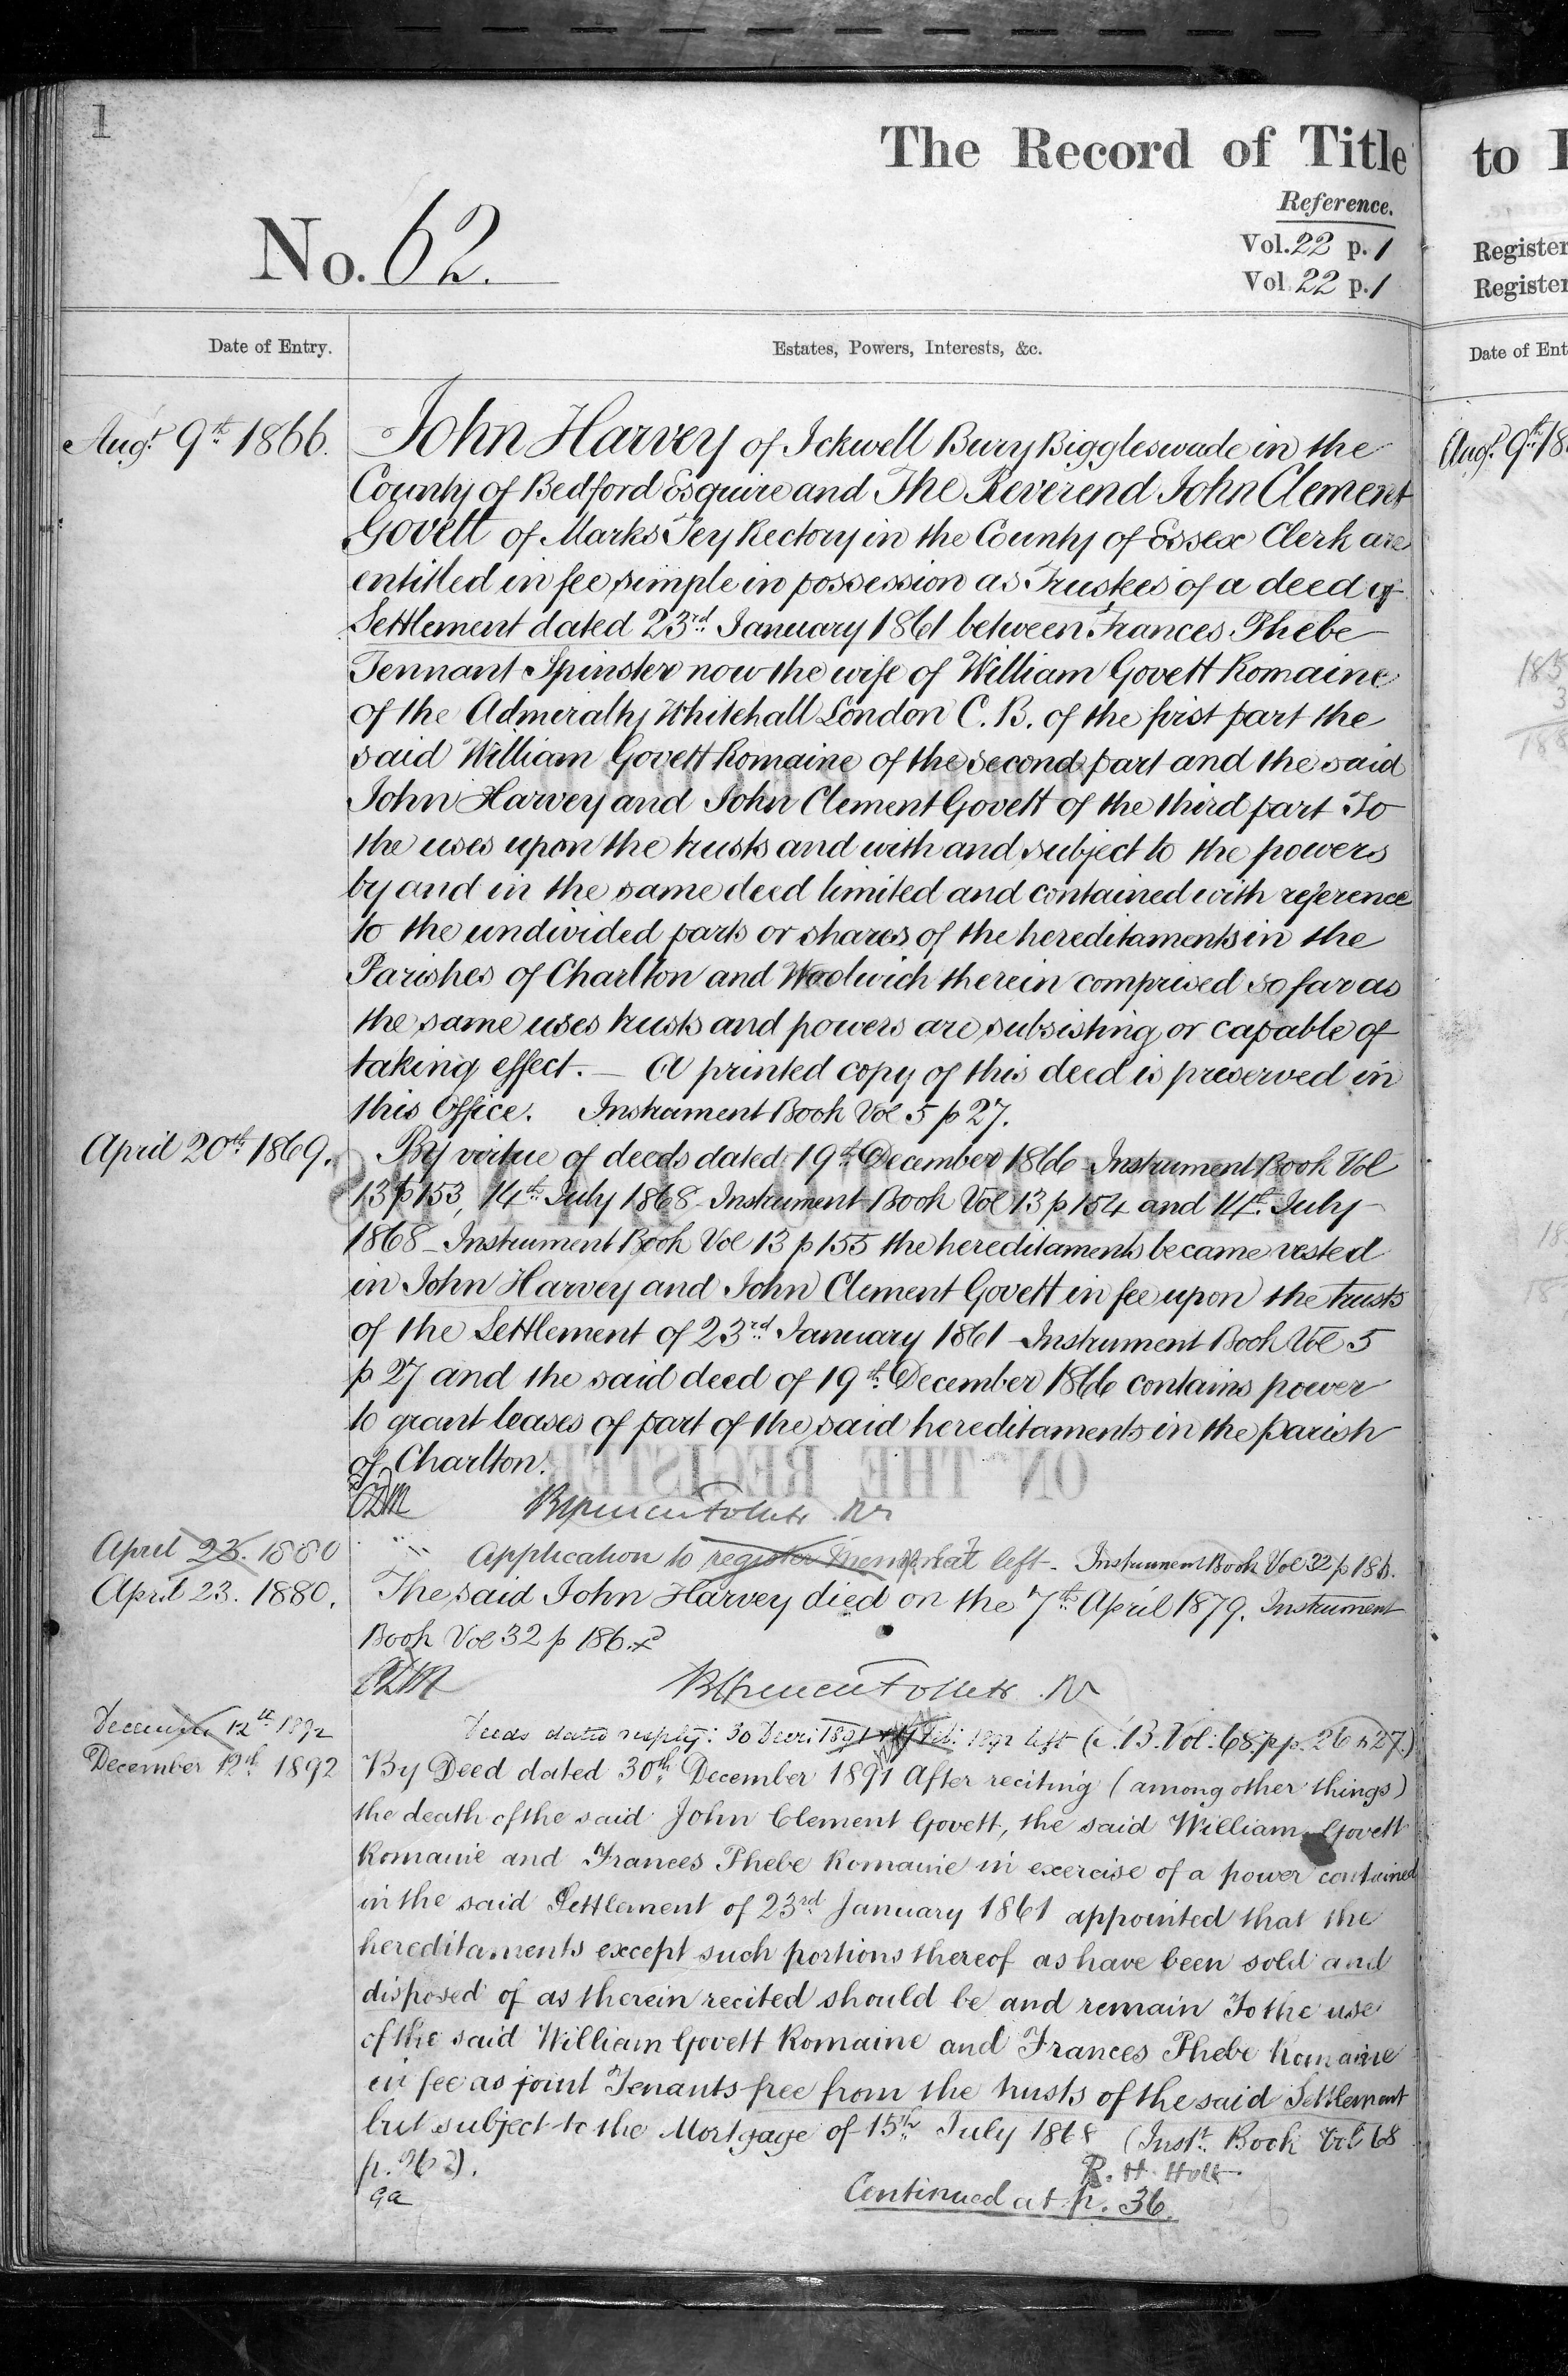 1
The Record of Title
to
Reference.
No. 62.
Vol. 22 p. 1
Register
Vol. 22 p. 1
Register
Date of Entry.
Estates, Powers, Interests, &c.
Date of Ent
Augt. 9th 1866.
John Harvey of Ickwell Bury Biggleswade in the
Augt. 9th 18
County of Bedford Esquire and The Reverend John Clement
Govett of Marks Tey Rectory in the County of Essex Clerk are
entitled in fee simple in possession as Trustees of a deed of
Settlement dated 23rd January 1861 between Frances Phebe
Tennant Spinster now the wife of William Govett Romaine
of the Admiralty Whitehall London C. B. of the first part the
said William Govett Romaine of the second part and the said
John Harvey and John Clement Govett of the third part To
the uses upon the trusts and with and subject to the powers
by and in the same deed limited and contained with reference
to the undivided parts or shares of the hereditaments in the
Parishes of Charlton and Woolwich therein comprised so far as
the same uses trusts and powers are subsisting or capable of
taking effect. — A printed copy of this deed is preserved in
this Office. Instrument Book Vol 5 p 27.
April 20th 1869.
By virtue of deeds dated 19th December 1866 Instrument Book Vol
13 p 153, 14th July 1868 Instrument Book Vol 13 p 154 and 14th July
1868 – Instrument Book Vol 13 p 155 the hereditaments became vested
in John Harvey and John Clement Govett in fee upon the trusts
of the Settlement of 23rd January 1861 Instrument Book Vol 5
p 27 and the said deed of 19th December 1866 contains power
to grant leases of part of the said hereditaments in the parish
of Charlton.
ON THE REGISTER
April 23. 1880
Application to register left - Instrument Book Vol 32 p 186.
April 23. 1880.
The said John Harvey died on the 7th April 1879. Instrument
Book Vol 32 p 186.
December 12th 1892
Deeds dated 30 Decr: 1891 1892 left (I.B. Vol: 68 pp. 26 & 27.)
December 12th 1892
By Deed dated 30th December 1891 After reciting (among other things)
the death of the said John Clement Govett, the said William Govett
Romaine and Frances Phebe Romaine in exercise of a power contained
in the said Settlement of 23rd January 1861 appointed that the
hereditaments except such portions thereof as have been sold and
disposed of as therein recited should be and remain To the use
of the said William Govett Romaine and Frances Phebe Romaine
in fee as joint Tenants free from the trusts of the said Settlement
but subject to the Mortgage of 15th July 1868 (Inst. Book Vol 68
p. 26).
R. H. Holt
Continued at p. 36.